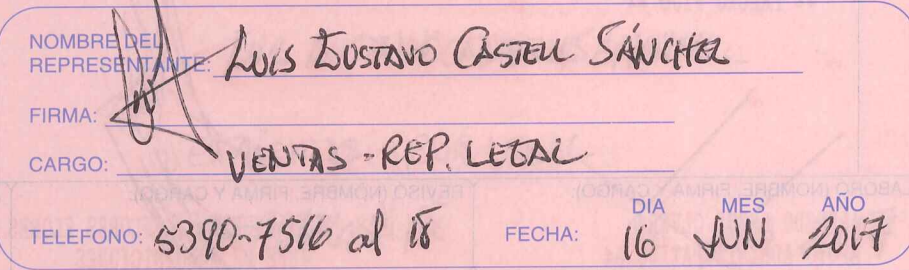 NOMBRE DEL
REPRESENTANTE: LUIS GUSTAVO CASTELL SÁNCHEZ
FIRMA:
CARGO: VENTAS - REP. LEGAL
DIA MES AÑO
TELEFONO: 5390-7516 al 18 FECHA: 16 JUN 2017